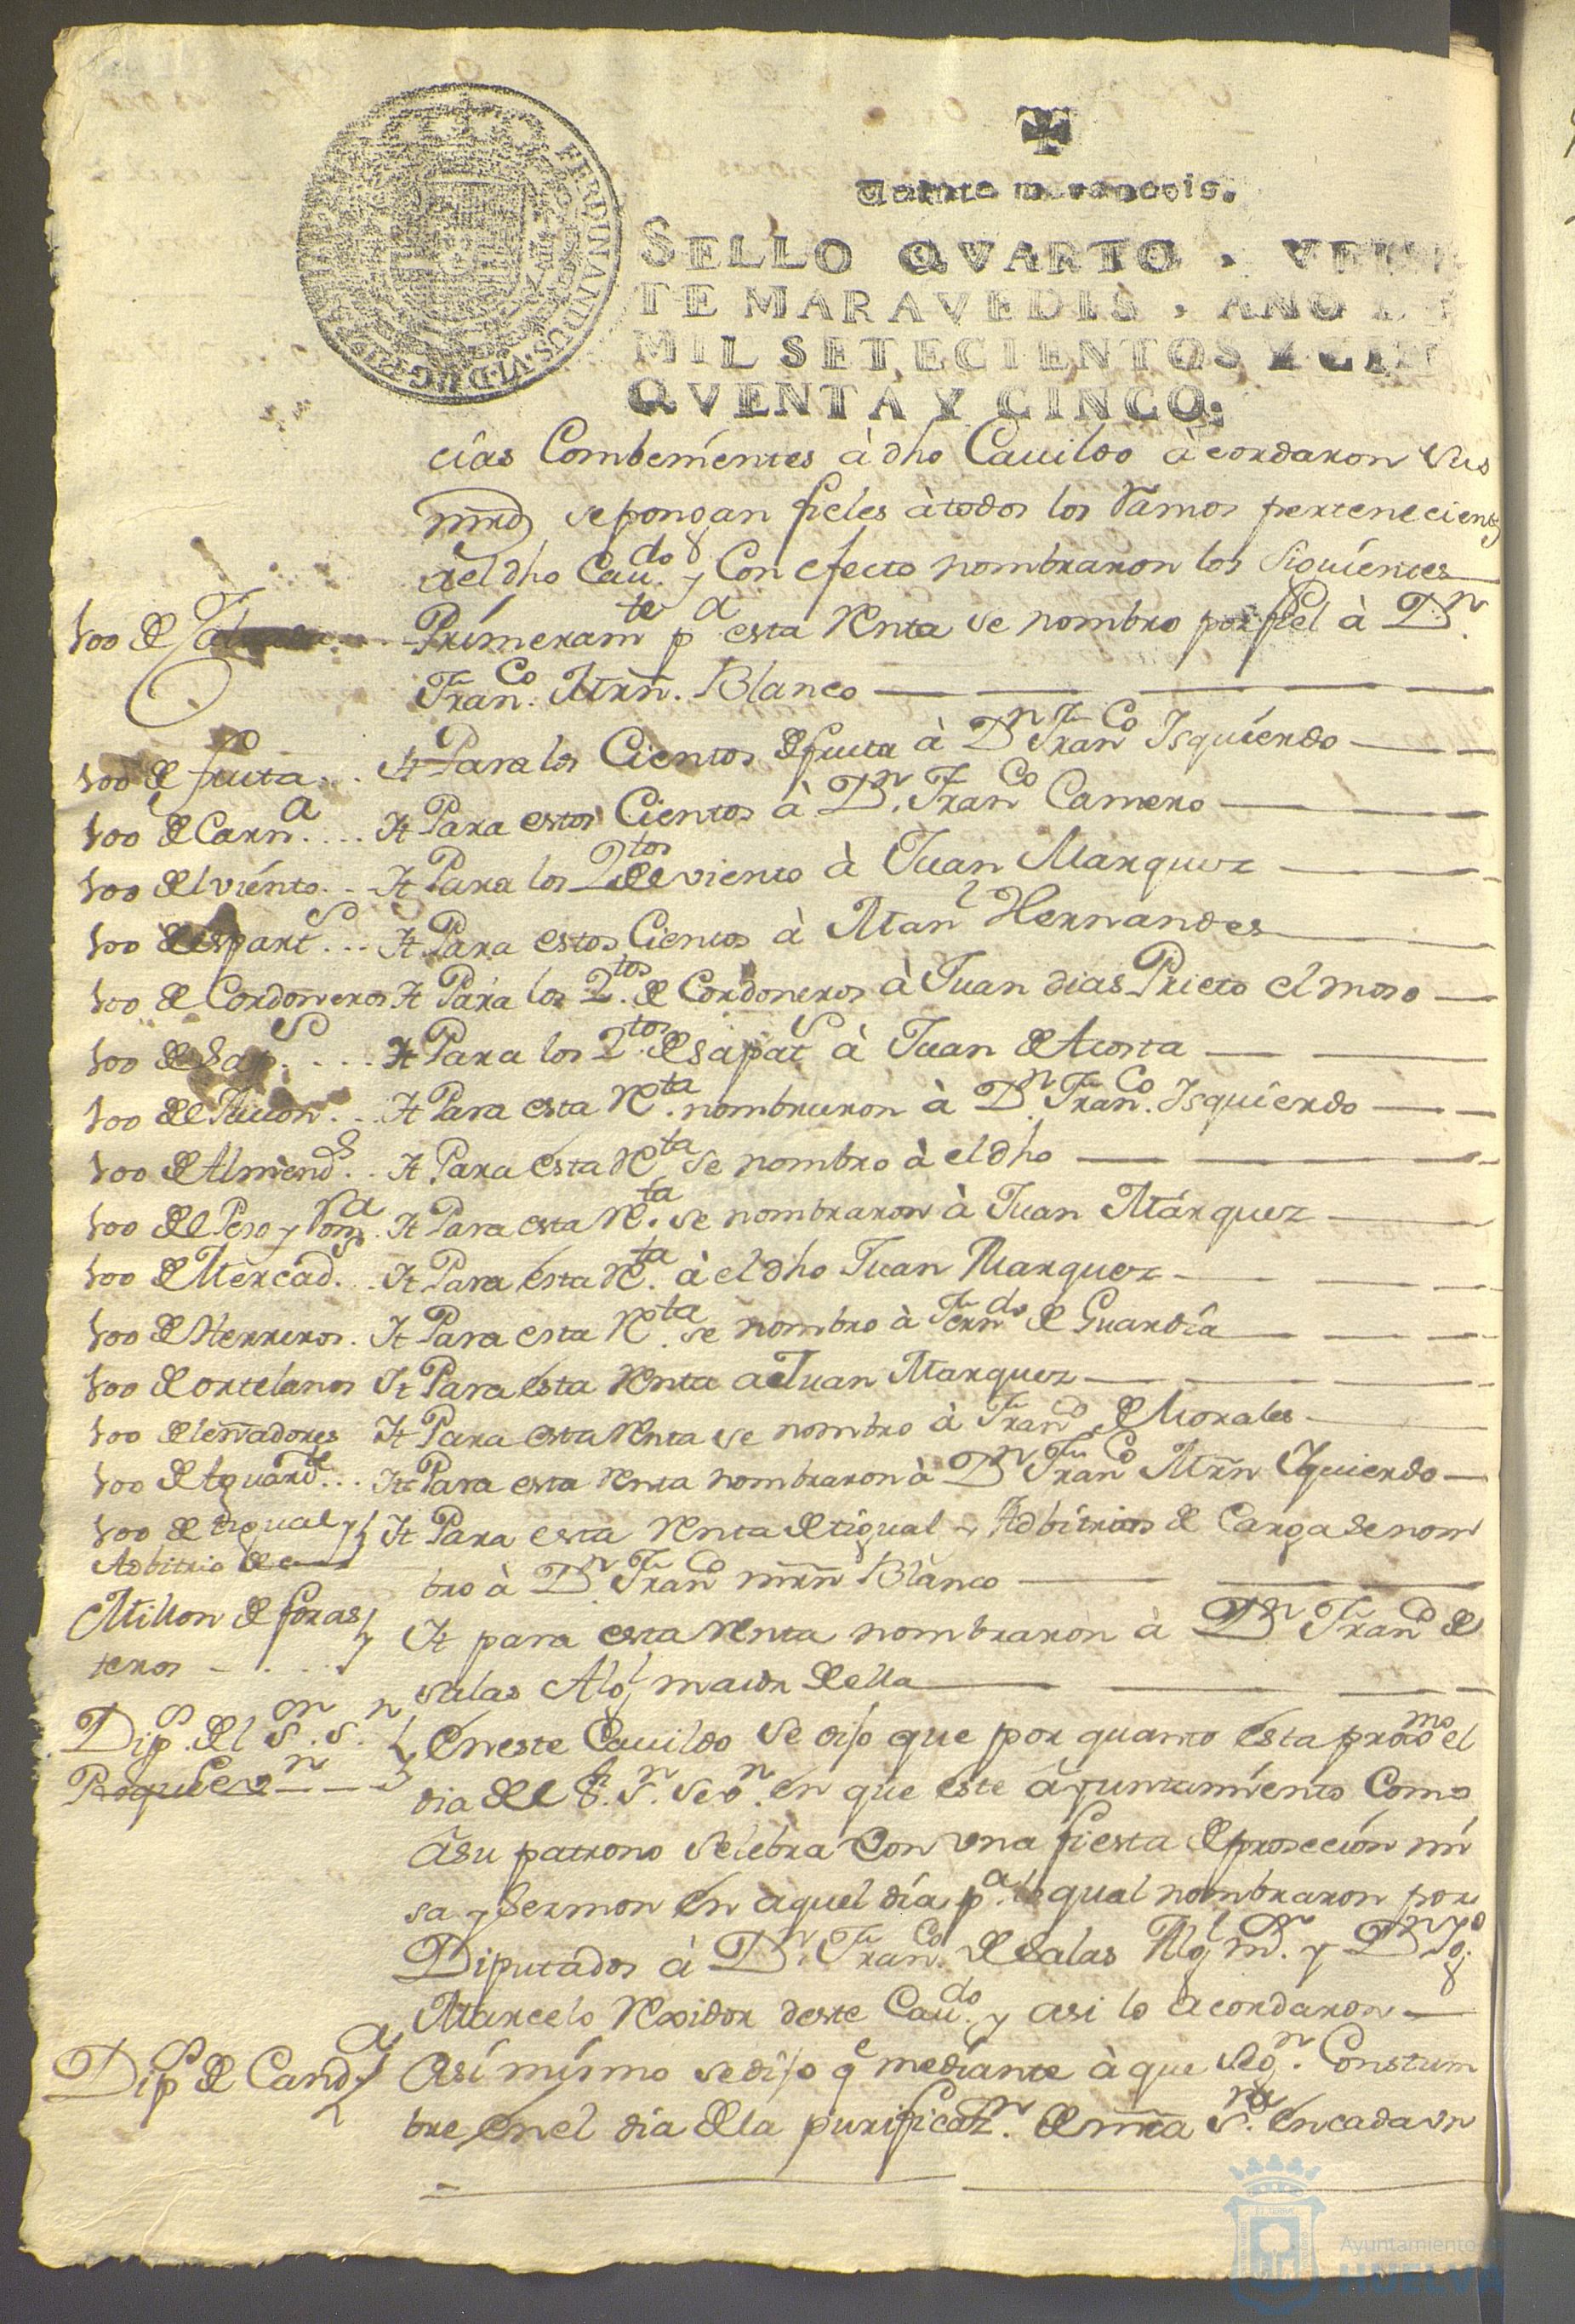 FERDINANDUS·VI·D·G·
Veinte maravedis.
SELLO QVARTO, VEIN
TE MARAVEDIS, AÑO DE
MIL SETECIENTOS Y CIN
QVENTA Y CINCO;
cias Combenientes à dho Cavildo àcordaron sus
mrds se pongan fieles àtodos los Ramos pertenecientes
àel dho Cavdo. y Con efecto nombraron los siguientes
100 de
Primeramte pa esta Renta se nombro por fiel à Dn.
Franco. Mrñ. Blanco
100 de fruta... It Para los Cientos de fruta à Dn Franco Isquierdo
100 de Carna.... It Para estos Cientos à Dn. Franco Camero
100 del viento... It Para los 2tos de viento à Juan Marquez
100 de espartO... It Para estos Cientos à Manl Hernandes
100 de Cordoneros It Para los 2tos. de Cordoneros à Juan dias Prieto el moso
100 de Sapo.... It Para los 2tos. de sapato à Juan de Acosta
100 de... It Para esta Rta. nombraron à Dn. Franco. Isquierdo
100 de Almends.. It Para esta Rta se nombro à el dho
100 del Peso y Roma. It Para esta Rta. se nombraron à Juan Márquez
100 de Mercad... It Para esta Rta. à el dho Juan Marquez
100 de Herreros. It Para esta Rta. se nombro à Ferndo de Guardia
100 de ortelanos It Para esta Renta a Juan Marquez
100 de leñadores It Para esta Renta se nombro à Franco de Morales
100 de Aguarde... It Para esta Renta nombraron à Dn Franco Mrñ Ysquierdo
100 de tigual y It Para esta Renta de tigual y Adbitrios de Carga se nom
Adbitrio de
bro à Dn Franco mrñ Blanco
Millon de foras
teros
It para esta Renta nombraron à Dn Franco de
salas Algl maior de ella
Dips. del Sr. Sn
En este Cavildo se dijo que por quanto esta proxmo el
dia de el Sr. Sn. en que este àyuntamiento Como
à su patrono Selebra con una fiesta de prosecion mi
sa y Sermon en aquel dia pa. lo qual nombraron por
Diputados à Dn. Franco. de Salas Algl mr. y Dn
Marcelo Rexidor deste Cavdo. y asi lo acordaron
Dips de Canda
Asi mismo se dijo qe mediante à que segn. Constum
bre en el dia de la purificazn. de nra Sra. en cada un
Ayuntamiento de
HUELVA